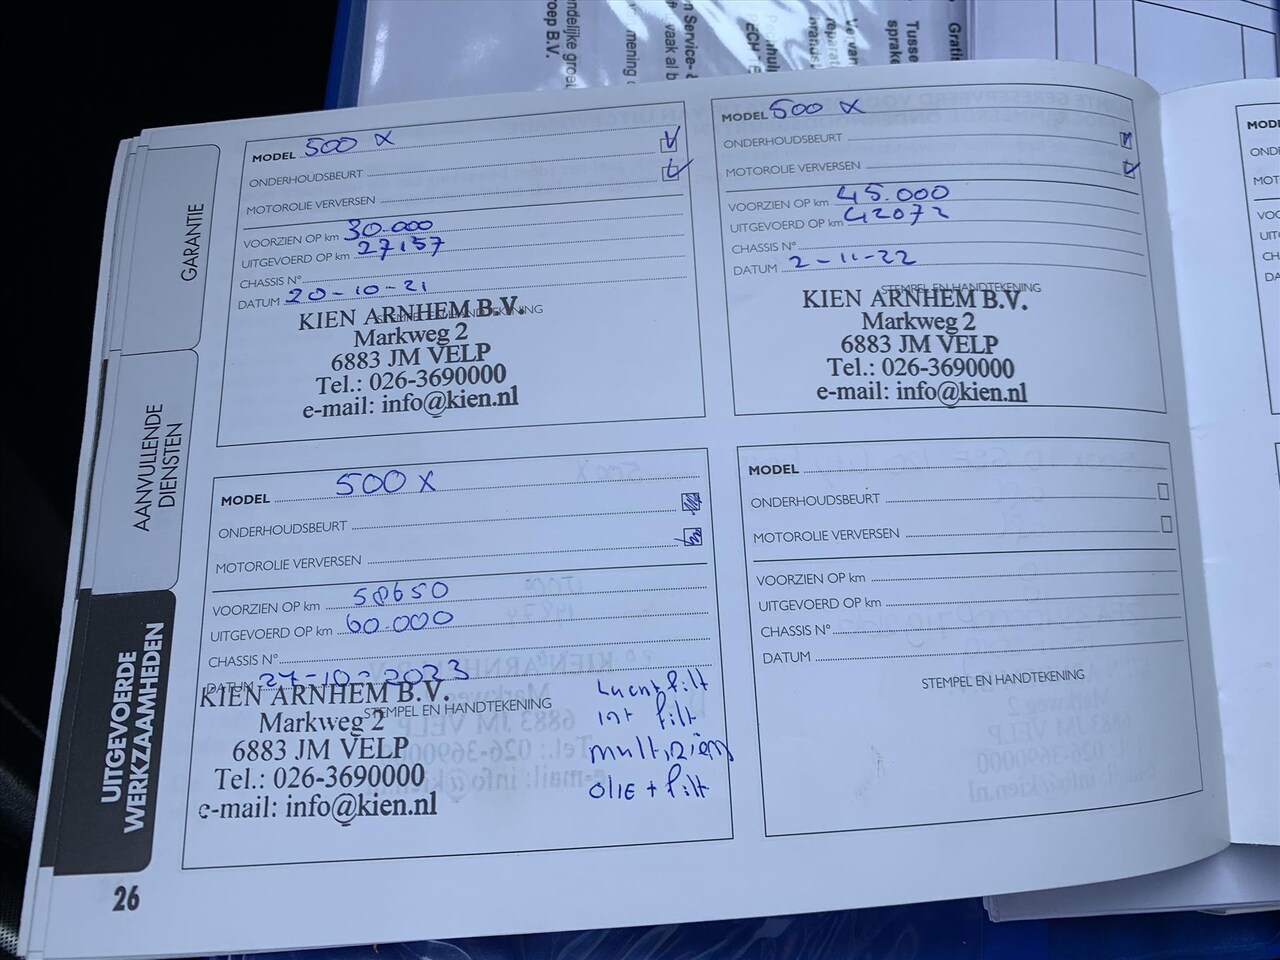 GARANTIE
AANVULLENDE
DIENSTEN
UITGEVOERDE
WERKZAAMHEDEN
26
MODEL 500 X
ONDERHOUDSBEURT
MOTOROLIE VERVERSEN
VOORZIEN OP km 30.000
UITGEVOERD OP km 27157
CHASSIS N°
DATUM 20-10-21
STEMPEL EN HANDTEKENING
KIEN ARNHEM B.V.
Markweg 2
6883 JM VELP
Tel.: 026-3690000
e-mail: info@kien.nl
MODEL 500 X
ONDERHOUDSBEURT
MOTOROLIE VERVERSEN
VOORZIEN OP km 45.000
UITGEVOERD OP km 42072
CHASSIS N°
DATUM 2-11-22
STEMPEL EN HANDTEKENING
KIEN ARNHEM B.V.
Markweg 2
6883 JM VELP
Tel.: 026-3690000
e-mail: info@kien.nl
MODEL 500 X
ONDERHOUDSBEURT
MOTOROLIE VERVERSEN
VOORZIEN OP km 58650
UITGEVOERD OP km 60.000
CHASSIS N°
DATUM 27-10-2023
STEMPEL EN HANDTEKENING
KIEN ARNHEM B.V.
Markweg 2
6883 JM VELP
Tel.: 026-3690000
e-mail: info@kien.nl
Luchtfilt
int filt
multiriem
olie + filt
MODEL
ONDERHOUDSBEURT
MOTOROLIE VERVERSEN
VOORZIEN OP km
UITGEVOERD OP km
CHASSIS N°
DATUM
STEMPEL EN HANDTEKENING